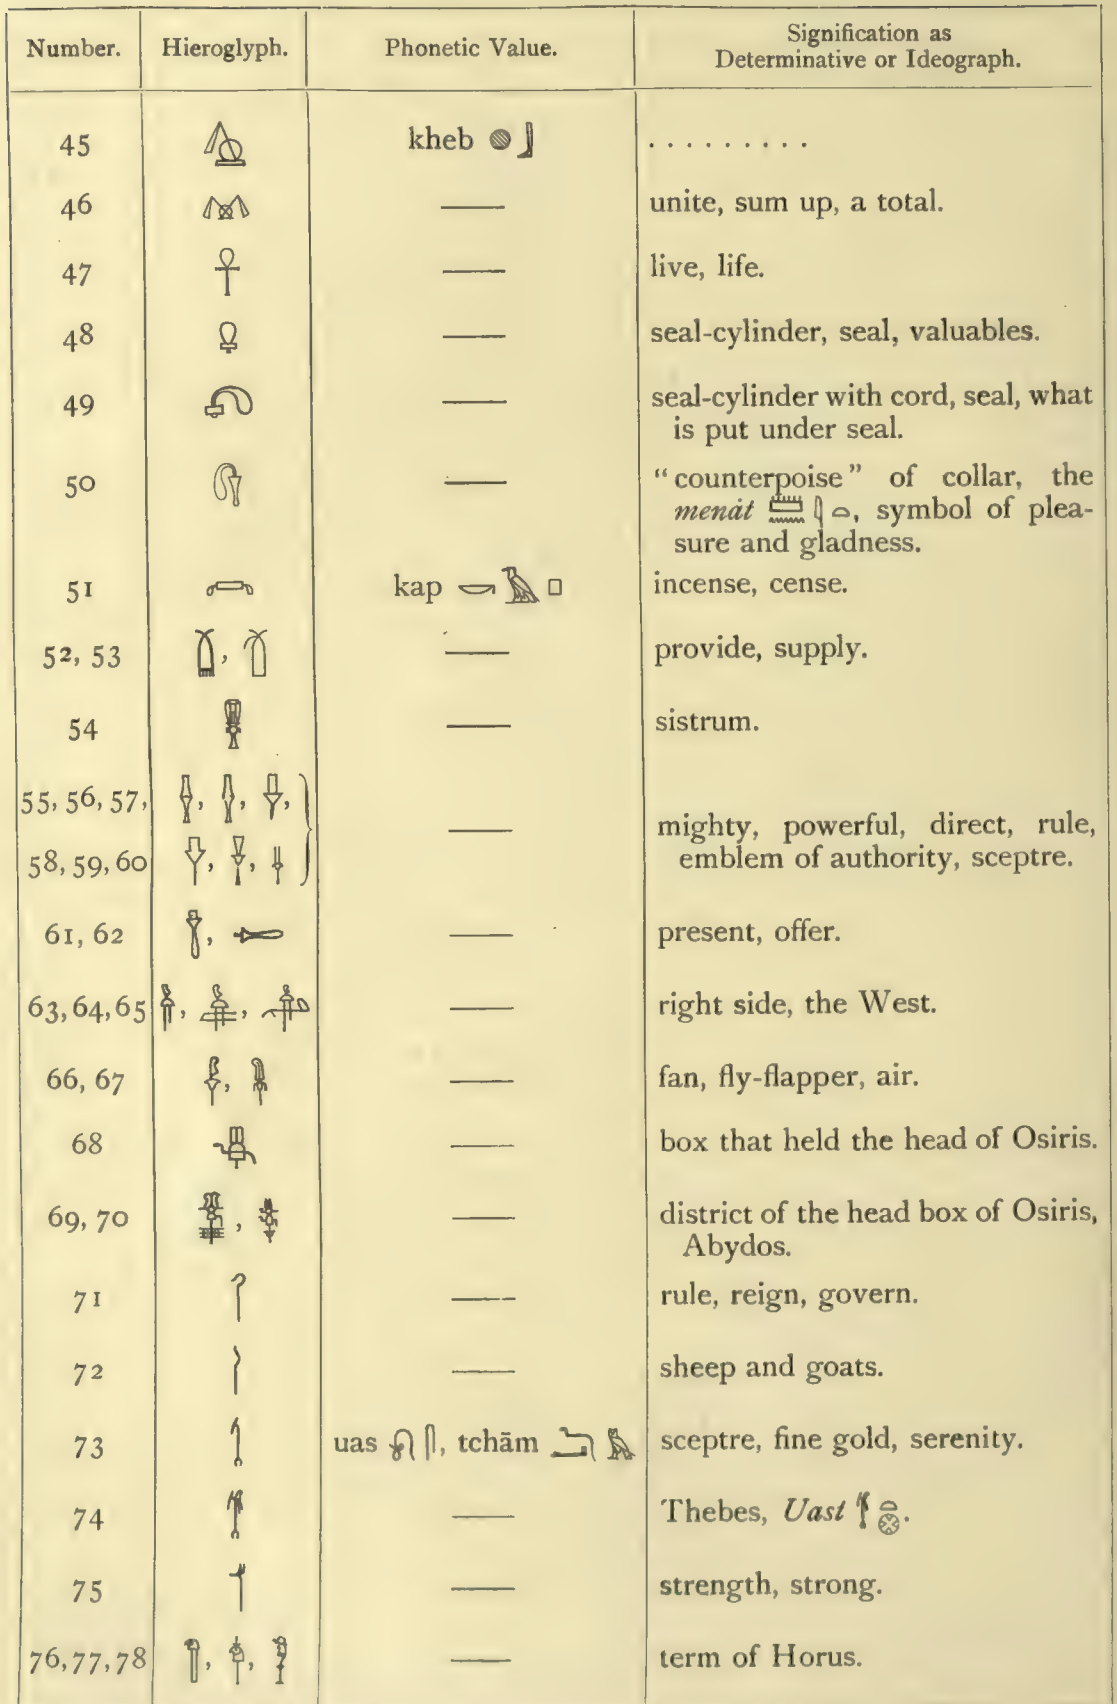 Number. Hieroglyph. Phonetic Value. Signification as
Determinative or Ideograph.
45 kheb 𓐍𓃀 . . . . . . . . .
46 — unite, sum up, a total.
47 𓋹 — live, life.
48 — seal-cylinder, seal, valuables.
49 — seal-cylinder with cord, seal, what
is put under seal.
50 — “counterpoise” of collar, the
menȧt 𓏠𓈖𓇋𓏏, symbol of plea-
sure and gladness.
51 kap 𓎡𓄿𓊪 incense, cense.
52, 53 , — provide, supply.
54 — sistrum.
55, 56, 57, , , ,
— mighty, powerful, direct, rule,
58, 59, 60 , , emblem of authority, sceptre.
61, 62 , — present, offer.
63, 64, 65 , , — right side, the West.
66, 67 , — fan, fly-flapper, air.
68 — box that held the head of Osiris.
69, 70 , — district of the head box of Osiris,
Abydos.
71 𓋾 — rule, reign, govern.
72 — sheep and goats.
73 uas 𓍯𓋴, tchām 𓅓 sceptre, fine gold, serenity.
74 — Thebes, Uast 𓌀𓏏𓊖.
75 — strength, strong.
76, 77, 78 , , — term of Horus.